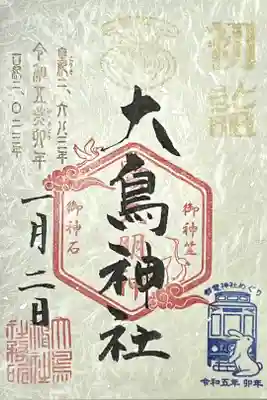 初詣
皇紀二、六八三年
令和五癸卯年
西暦二、〇二三年
大鳥神社
一月二日
御神笠
御神石
大鳥神社社務所
都電神社めぐり
令和五年 卯年